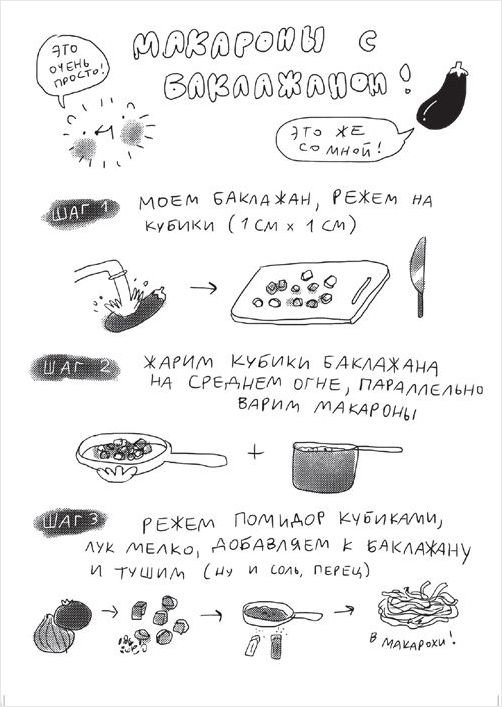 ЭТО
ОЧЕНЬ
ПРОСТО!
МАКАРОНЫ С
БАКЛАЖАНОМ!
ЭТО ЖЕ
СО МНОЙ!
ШАГ 1
МОЕМ БАКЛАЖАН, РЕЖЕМ НА
КУБИКИ (1 СМ х 1 СМ)
ШАГ 2
ЖАРИМ КУБИКИ БАКЛАЖАНА
НА СРЕДНЕМ ОГНЕ, ПАРАЛЛЕЛЬНО
ВАРИМ МАКАРОНЫ
ШАГ 3
РЕЖЕМ ПОМИДОР КУБИКАМИ,
ЛУК МЕЛКО, ДОБАВЛЯЕМ К БАКЛАЖАНУ
И ТУШИМ (НУ И СОЛЬ, ПЕРЕЦ)
В МАКАРОХИ!